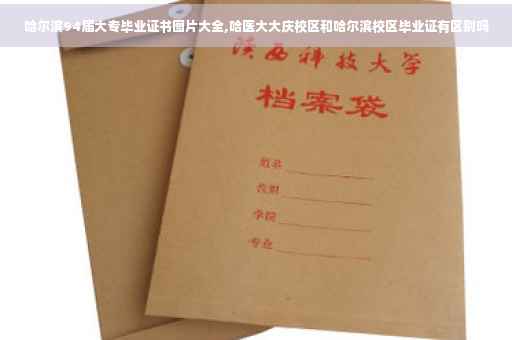 哈尔滨94届大专毕业证书图片大全,哈医大大庆校区和哈尔滨校区毕业证有区别吗
陕西科技大学
档案袋
姓名
学院
专业